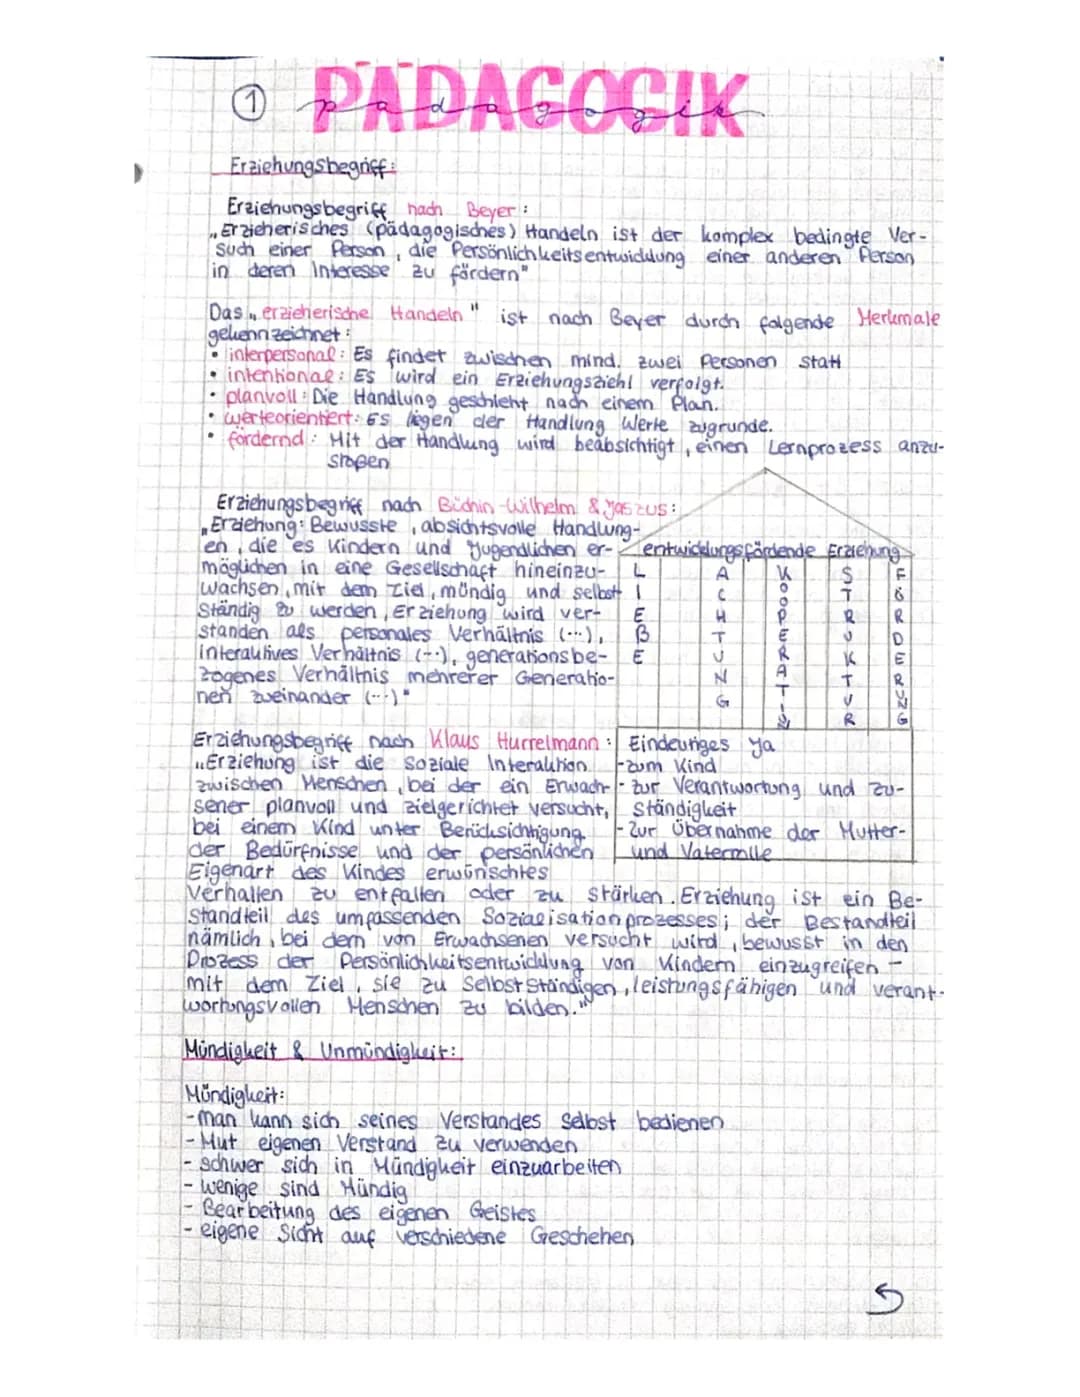 ① PÄDAGOGIK
pädagogik
Erziehungsbegriff:
Erziehungsbegriff nach Beyer:
„Erzieherisches (pädagogisches) Handeln ist der komplex bedingte Ver-
such einer Person, die Persönlichkeitsentwicklung einer anderen Person
in deren Interesse zu fördern"
Das „erzieherische Handeln" ist nach Beyer durch folgende Merkmale
gekennzeichnet:
• interpersonal: Es findet zwischen mind. zwei Personen statt
• intentional: Es wird ein Erziehungsziehl verfolgt.
• planvoll: Die Handlung geschieht nach einem Plan.
• werteorientiert: Es liegen der Handlung Werte zugrunde.
• fördernd: Mit der Handlung wird beabsichtigt, einen Lernprozess anzu-
stoßen
Erziehungsbegriff nach Büchin-Wilhelm & Jaszus:
„Erziehung: Bewusste, absichtsvolle Handlung-
en, die es Kindern und Jugendlichen er-
möglichen in eine Gesellschaft hineinzu-
wachsen, mit dem Ziel, mündig und selbst
ständig zu werden, Erziehung wird ver-
standen als personales Verhältnis (...),
interaktives Verhältnis (...), generationsbe-
zogenes Verhältnis mehrerer Generatio-
nen zueinander (...)"
entwicklungsfördende Erziehung
LIEBE
ACHTUNG
KOOPERATION
STRUKTUR
FÖRDERUNG
Eindeutiges Ja
-zum Kind
-zur Verantwortung und Zu-
ständigkeit
-Zur Übernahme der Mutter-
und Vaterrolle
Erziehungsbegriff nach Klaus Hurrelmann:
„Erziehung ist die soziale Interaktion
zwischen Menschen, bei der ein Erwach-
sener planvoll und zielgerichtet versucht,
bei einem Kind unter Berücksichtigung
der Bedürfnisse und der persönlichen
Eigenart des Kindes erwünschtes
Verhalten zu entfalten oder zu stärken. Erziehung ist ein Be-
standteil des umpassenden Sozialisationprozesses; der Bestandteil
nämlich, bei dem von Erwachsenen versucht wird, bewusst in den
Prozess der Persönlichkeitsentwicklung von Kindern einzugreifen -
mit dem Ziel, sie zu selbstständigen, leistungsfähigen und verant-
wortungsvollen Menschen zu bilden."
Mündigkeit & Unmündigkeit:
Mündigkeit:
-man kann sich seines Verstandes selbst bedienen
-Mut eigenen Verstand zu verwenden
- schwer sich in Mündigkeit einzuarbeiten
- wenige sind Mündig
- Bearbeitung des eigenen Geistes
- eigene Sicht auf verschiedene Geschehen